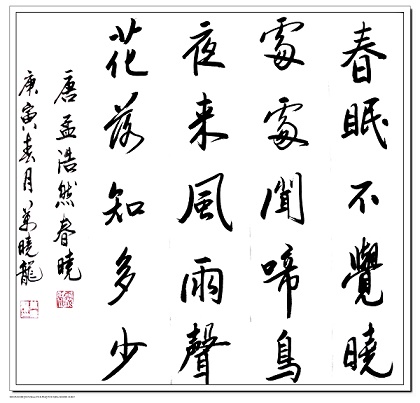 春眠不覺曉
處處聞啼鳥
夜来風雨聲
花落知多少
唐孟浩然春曉
庚寅春月萬曉龍